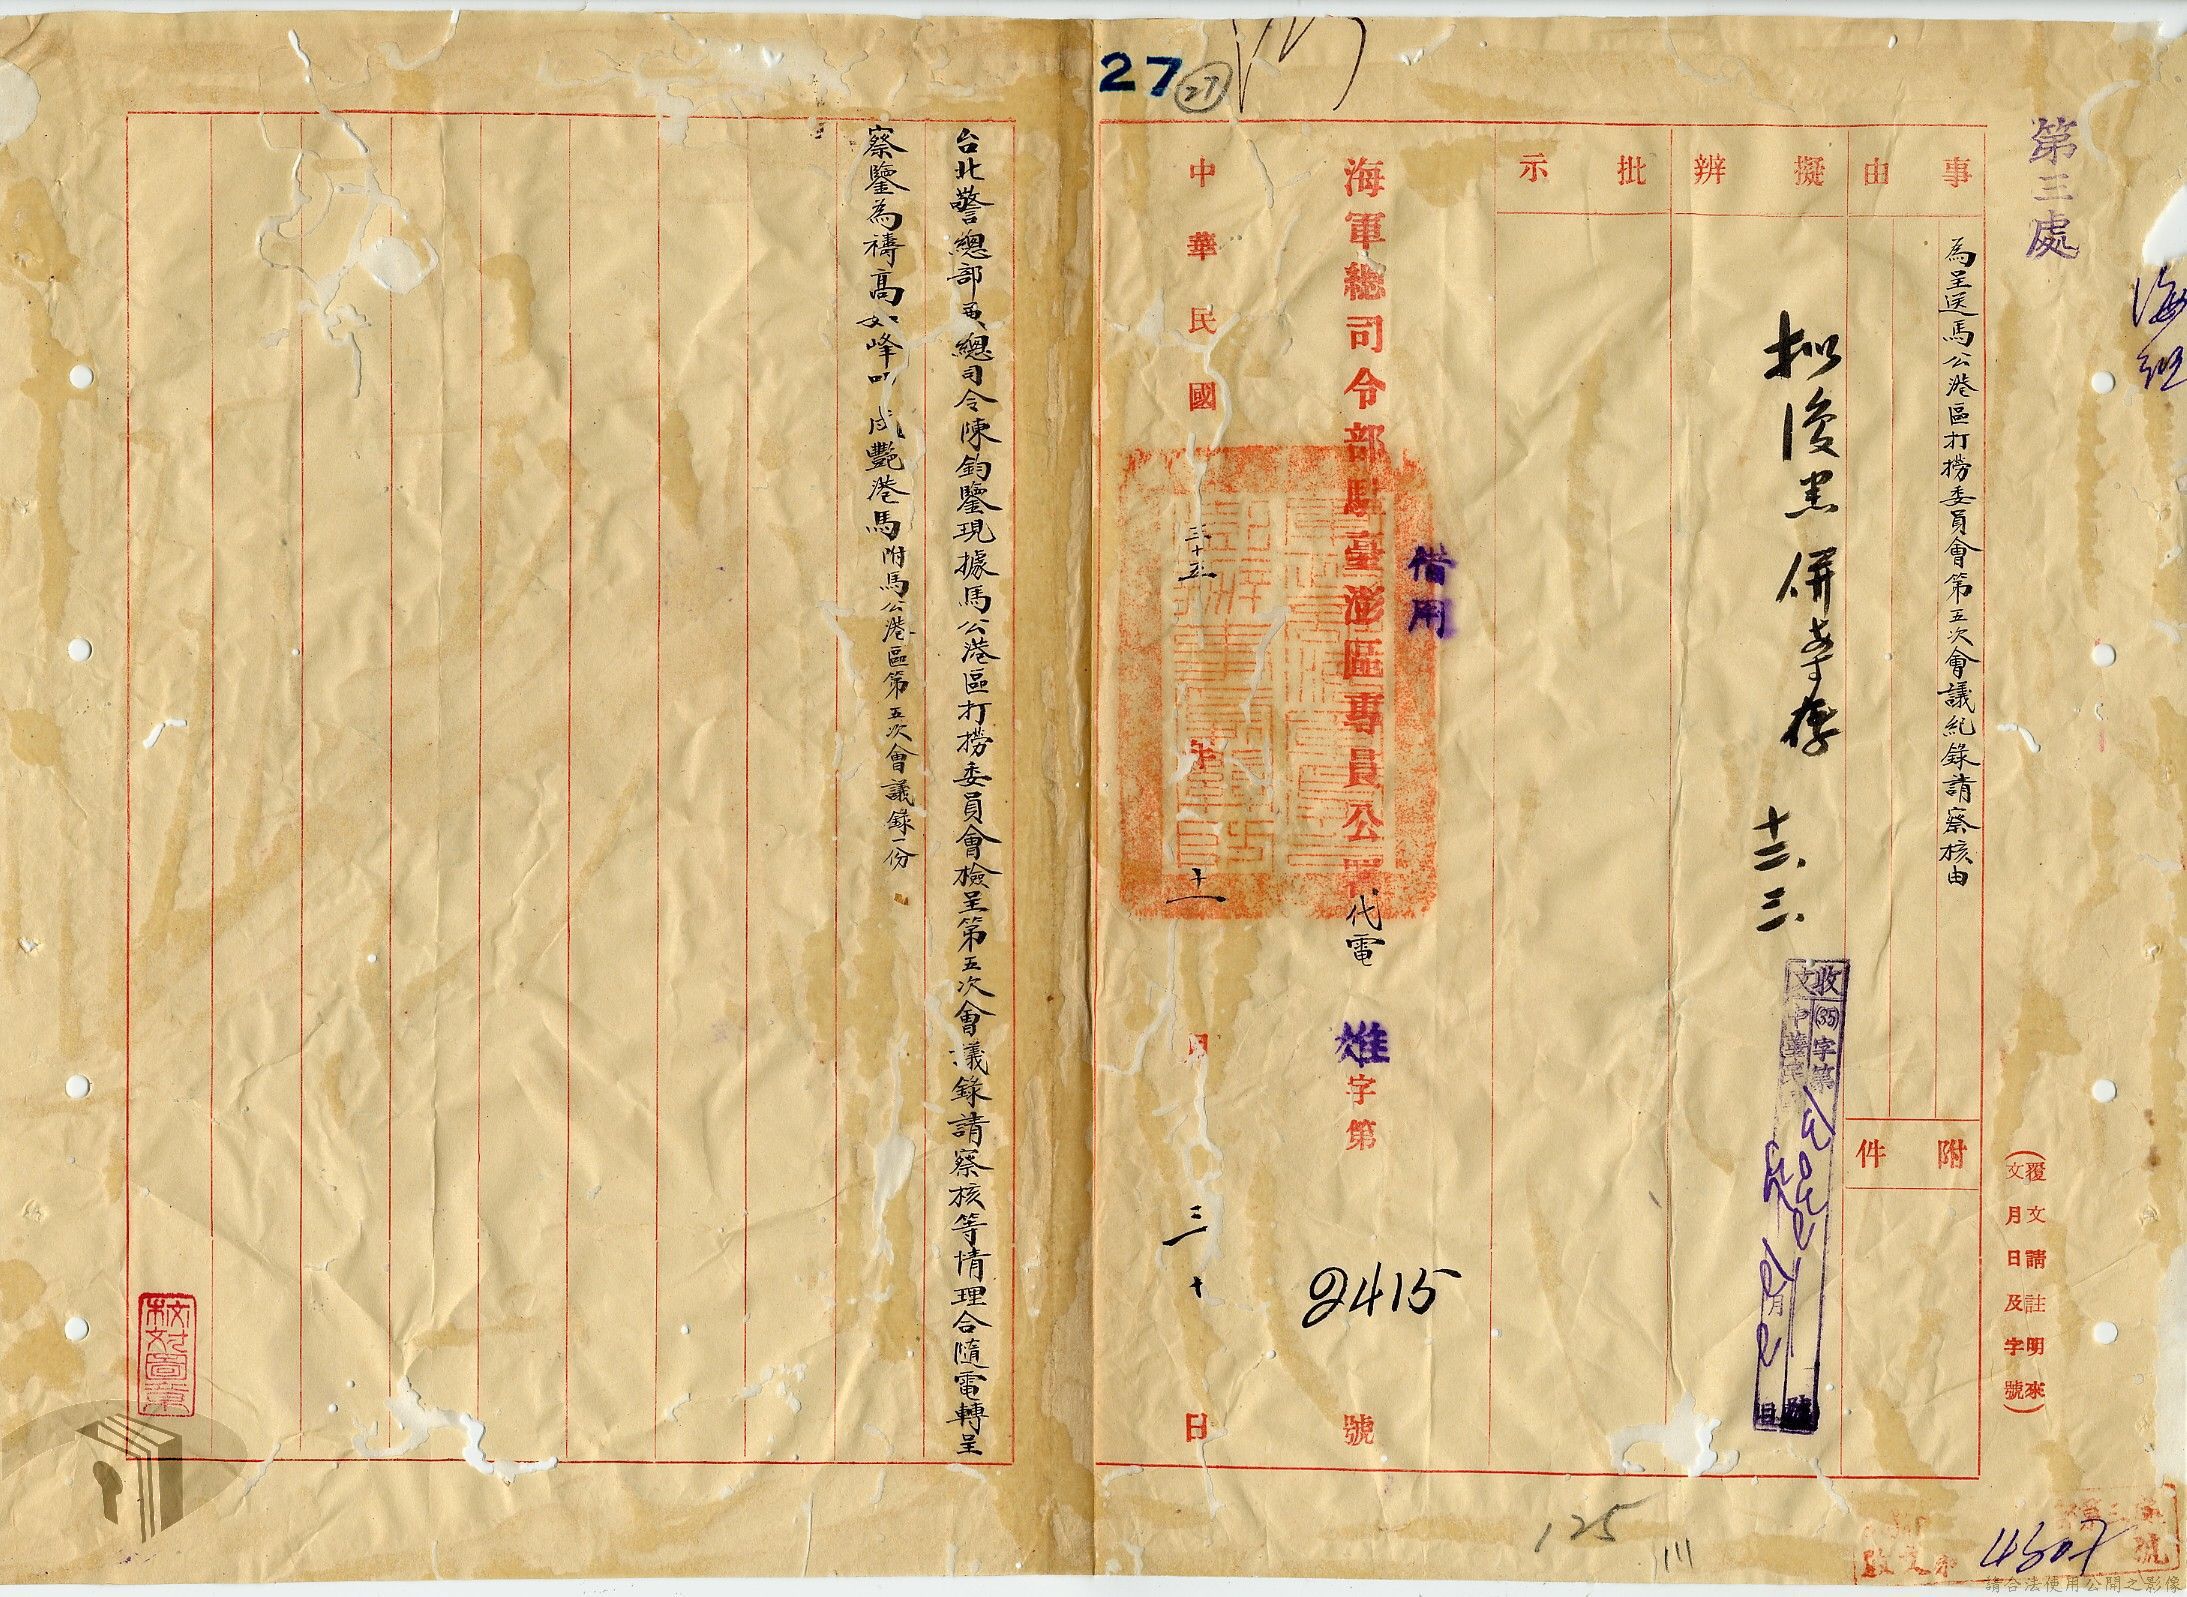 第三處
海
27
27
事由
為呈送馬公港區打撈委員會第五次會議紀錄請察核由
附件
擬辦
批示
擬後案併卷存
十二、三、
收文
(35)字第
號
中華民
月
日
(覆文請註明來
文月日及字號)
海軍總司令部駐臺澎區專員公署代電
雄字第2415號
借用
中華民國三十五年十一月三十日
台北警總部兼總司令陳鈞鑒現據馬公港區打撈委員會檢呈第五次會議錄請察核等情理合隨電轉呈
察鑒為禱高如峰叩戌艷港馬附馬公港區第五次會議錄一份
校對
125
第三處
收文
號
4507
請合法使用公開之影像